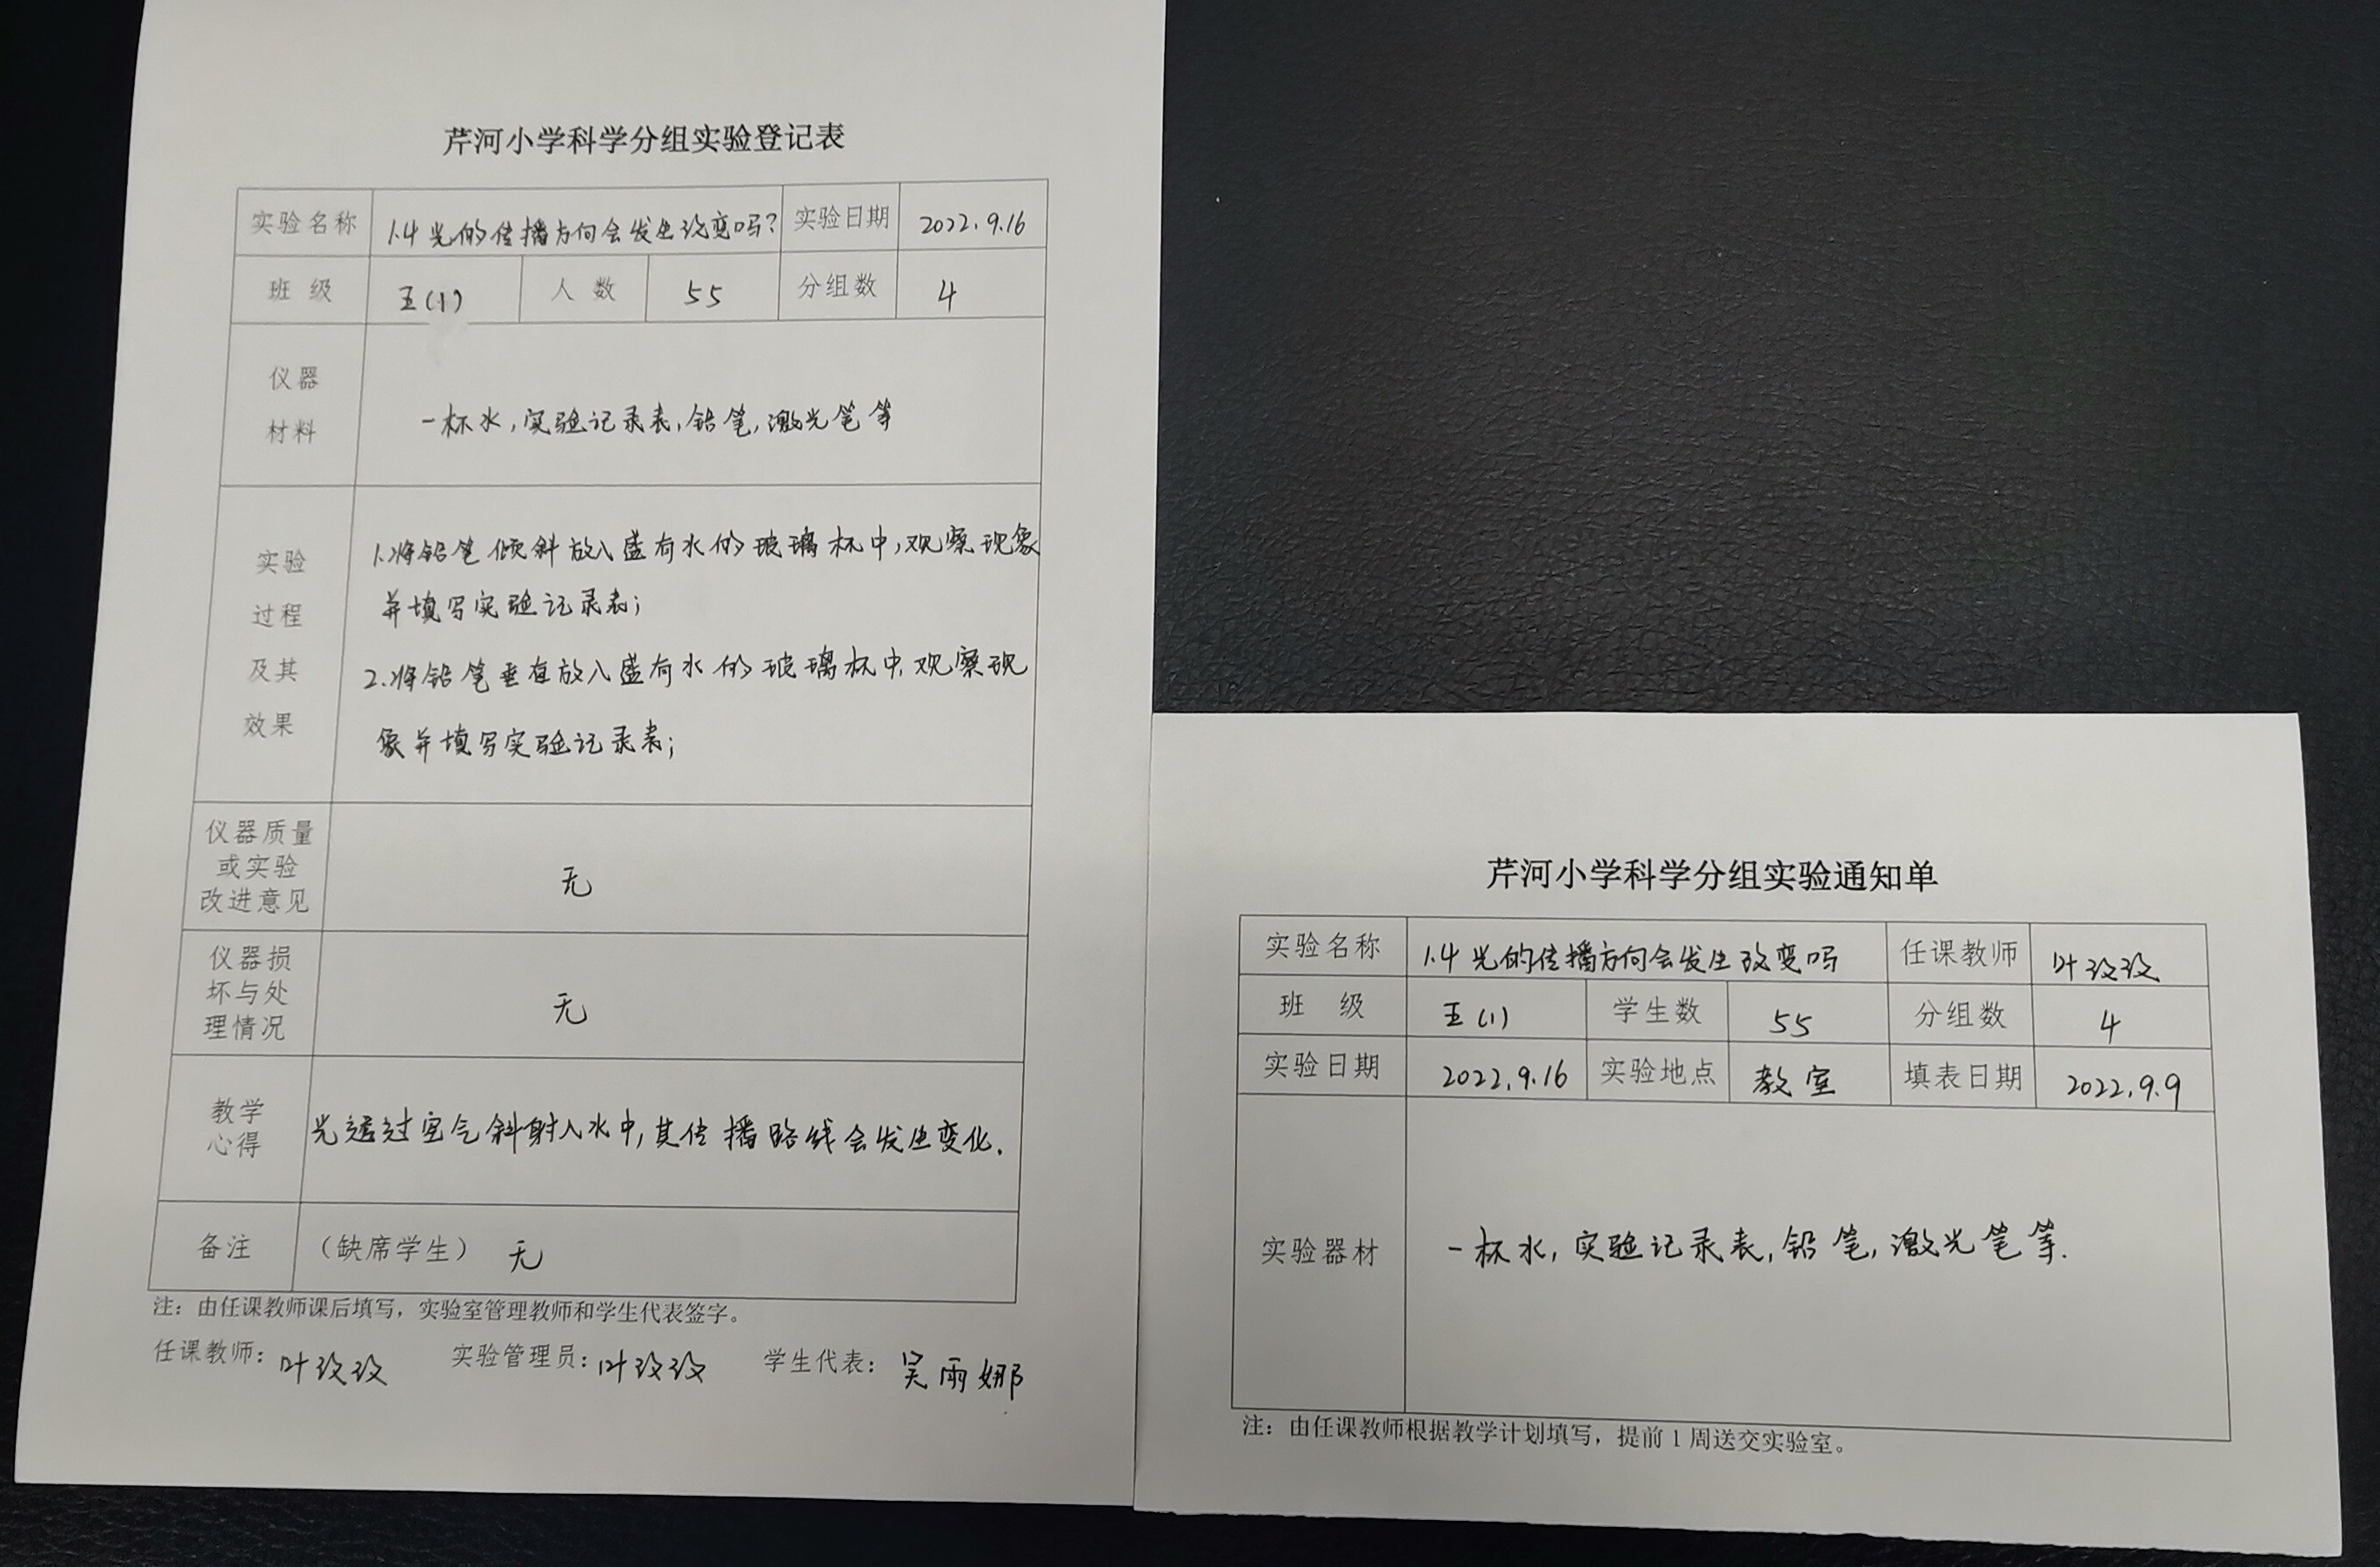 芹河小学科学分组实验登记表
实验名称 1.4光的传播方向会发生改变吗? 实验日期 2022.9.16
班 级 五(1) 人 数 55 分组数 4
仪器
材料
一杯水,实验记录表,铅笔,激光笔等
实验
过程
及其
效果
1.将铅笔倾斜放入盛有水的玻璃杯中,观察现象
并填写实验记录表;
2.将铅笔垂直放入盛有水的玻璃杯中,观察现
象并填写实验记录表;
仪器质量
或实验
改进意见
无
仪器损
坏与处
理情况
无
教学
心得
光透过空气斜射入水中,其传播路线会发生变化.
备注 (缺席学生) 无
注:由任课教师课后填写,实验室管理教师和学生代表签字。
任课教师:叶玟玟 实验管理员:叶玟玟 学生代表:吴雨娜
芹河小学科学分组实验通知单
实验名称 1.4光的传播方向会发生改变吗 任课教师 叶玟玟
班 级 五(1) 学生数 55 分组数 4
实验日期 2022.9.16 实验地点 教室 填表日期 2022.9.9
实验器材 一杯水,实验记录表,铅笔,激光笔等.
注:由任课教师根据教学计划填写,提前1周送交实验室。